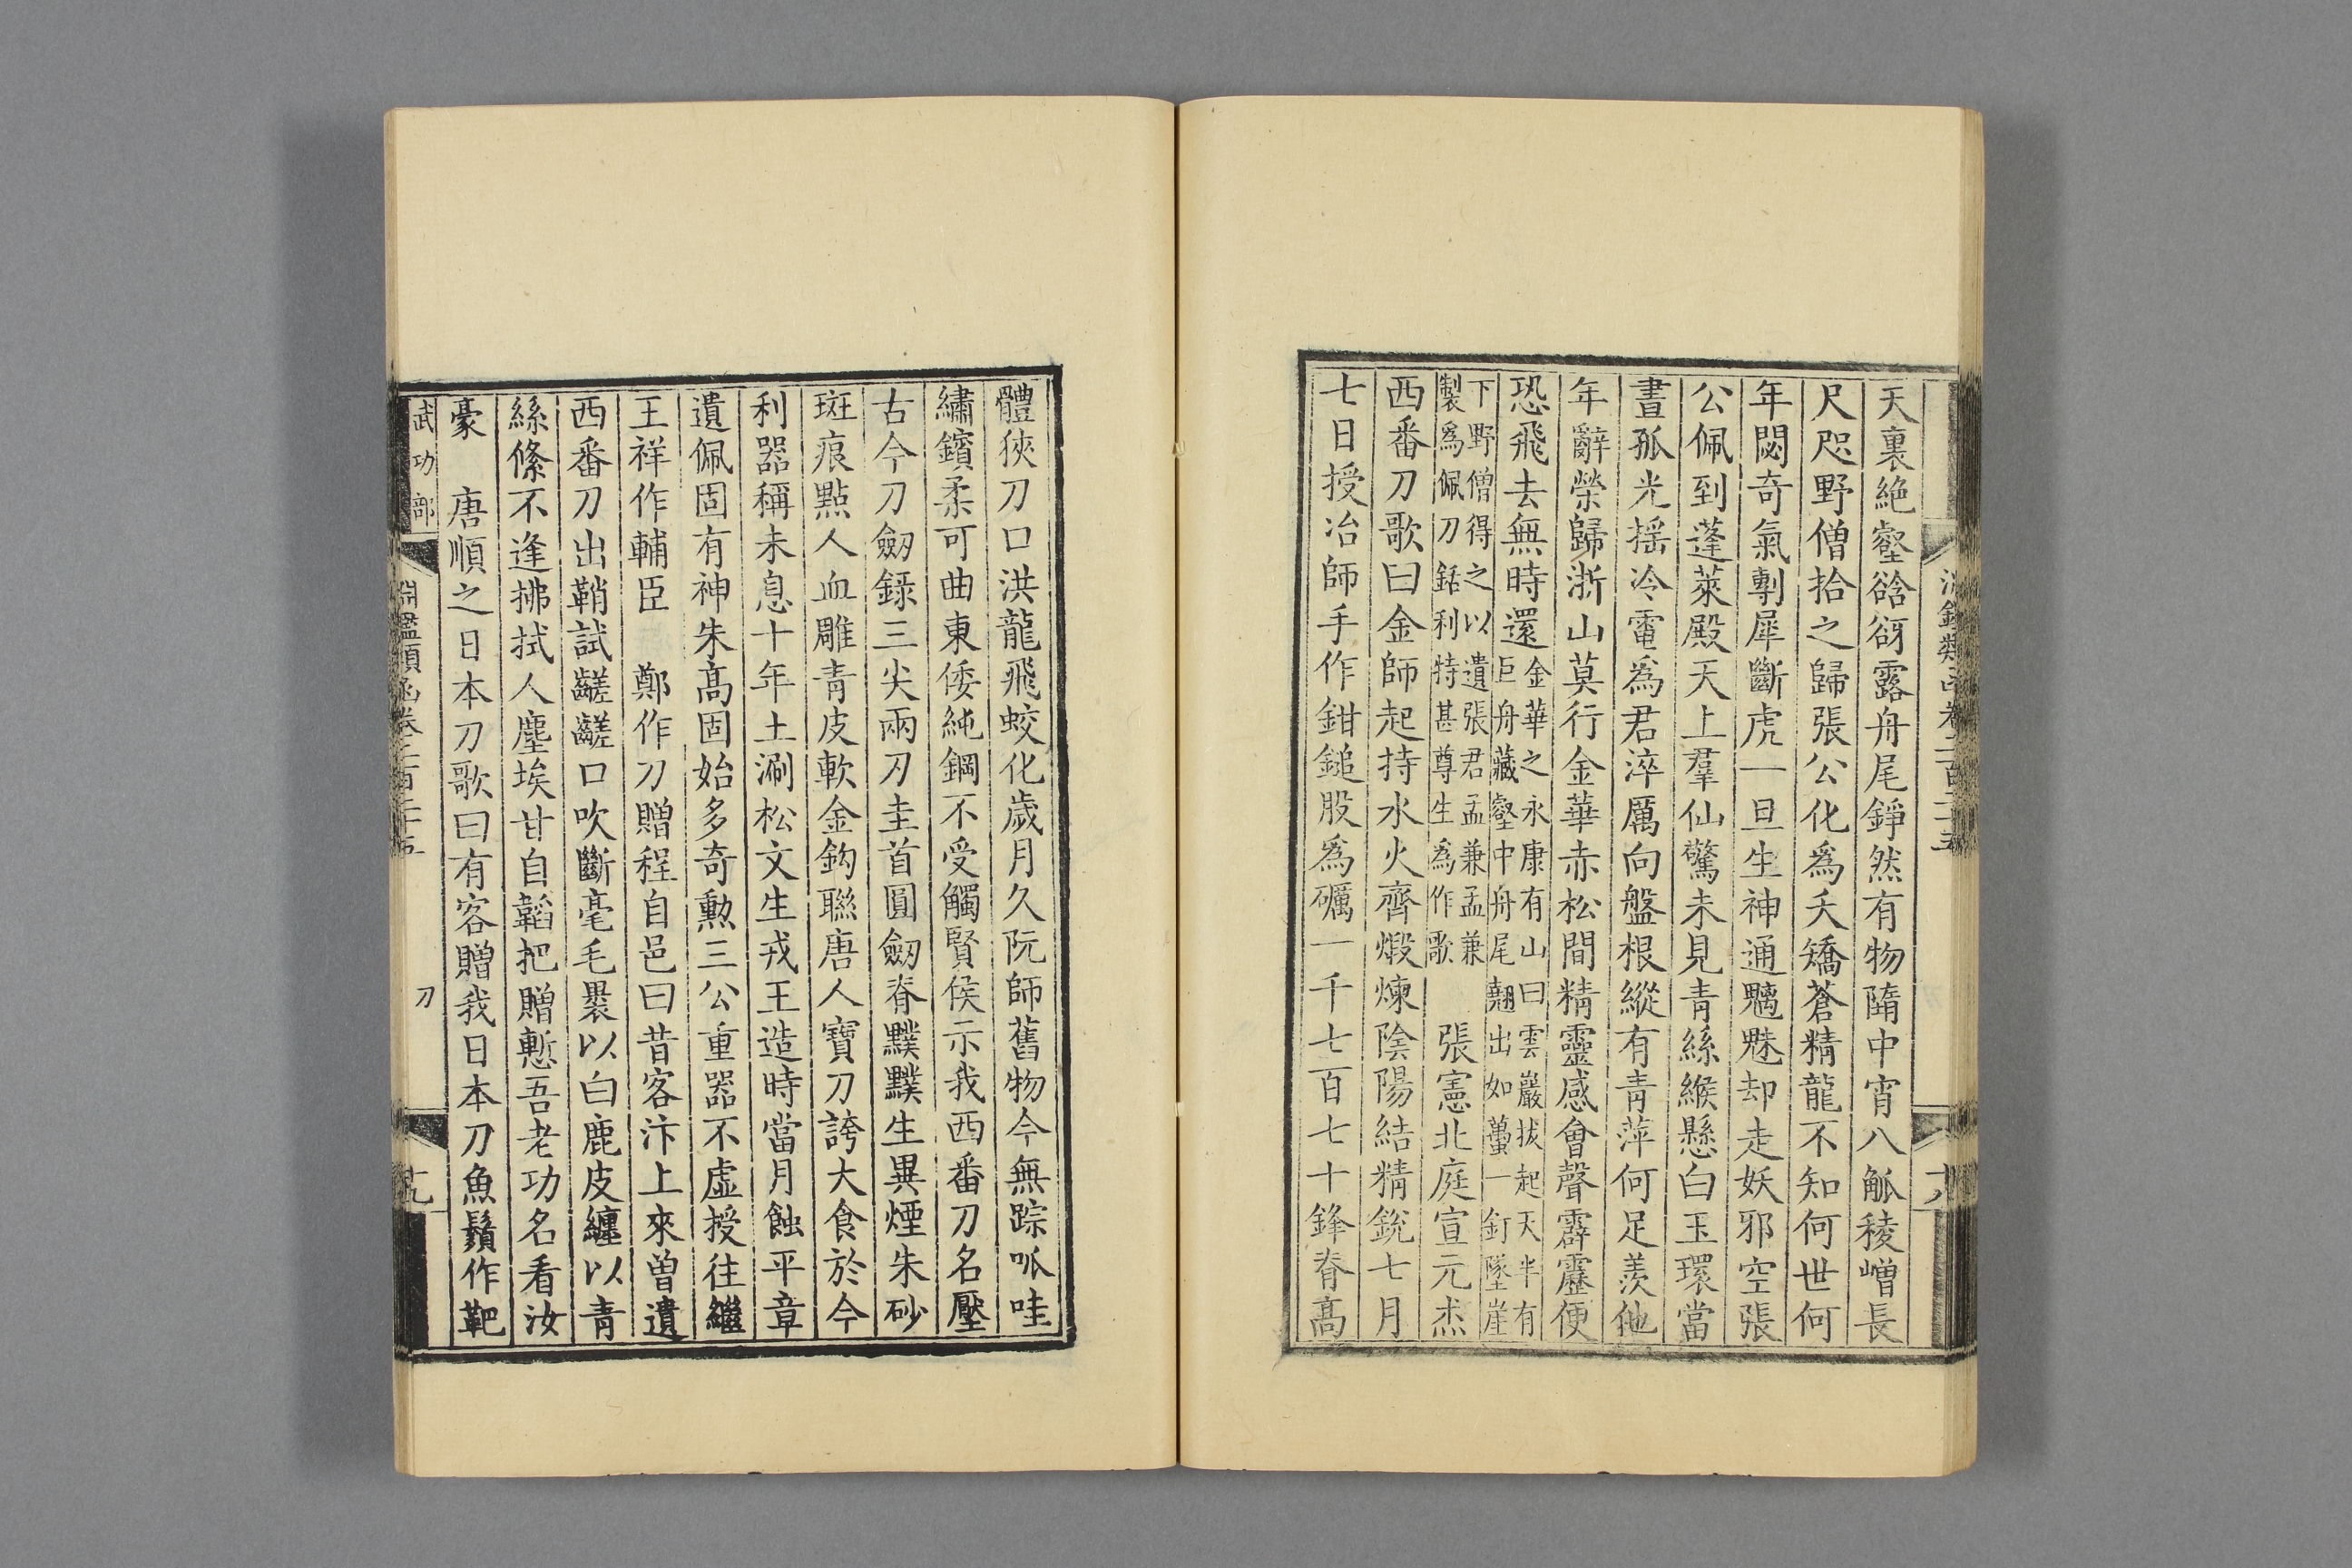 天裏絶壑谽谺露舟尾錚然有物隋中宵八觚稜嶒長
尺咫野僧拾之歸張公化爲夭矯蒼精龍不知何世何
年閟奇氣剸犀斷虎一旦生神通魑魅却走妖邪空張
公佩到蓬萊殿天上羣仙驚未見青絲緱懸白玉環當
晝孤光揺冷電爲君淬厲向盤根縱有青萍何足羨他
年辭榮歸浙山莫行金華赤松間精靈感會聲霹靂便
恐飛去無時還金華之永康有山曰雲巖拔起天半有
巨舟藏壑中舟尾翹出如蠆一釘墜崖
下野僧得之以遺張君孟兼孟兼
製爲佩刀銛利特甚尊生爲作歌　張憲北庭宣元杰
西番刀歌曰金師起持水火齊煅煉陰陽結精銳七月
七日授冶師手作鉗鎚股爲礪一千七百七十鋒脊髙
體狹刀口洪龍飛蛟化歲月久阮師舊物今無踪呱哇
繡鑌柔可曲東倭純鋼不受觸賢侯示我西番刀名壓
古今刀劒録三尖兩刃圭首圓劒脊黰黰生異煙朱砂
斑痕點人血雕青皮軟金鈎聯唐人寶刀誇大食於今
利器稱未息十年土涮松文生戎王造時當月蝕平章
遺佩固有神朱髙固始多奇勲三公重器不虛授往繼
王祥作輔臣　鄭作刀贈程自邑曰昔客汴上來曽遺
西番刀出鞘試齹齹口吹斷毫毛褁以白鹿皮纏以青
絲絛不逢拂拭人塵埃甘自韜把贈慙吾老功名看汝
豪　唐順之日本刀歌曰有客贈我日本刀魚鬚作靶
武功部　淵鑑類函卷二百二十五　刀　十九